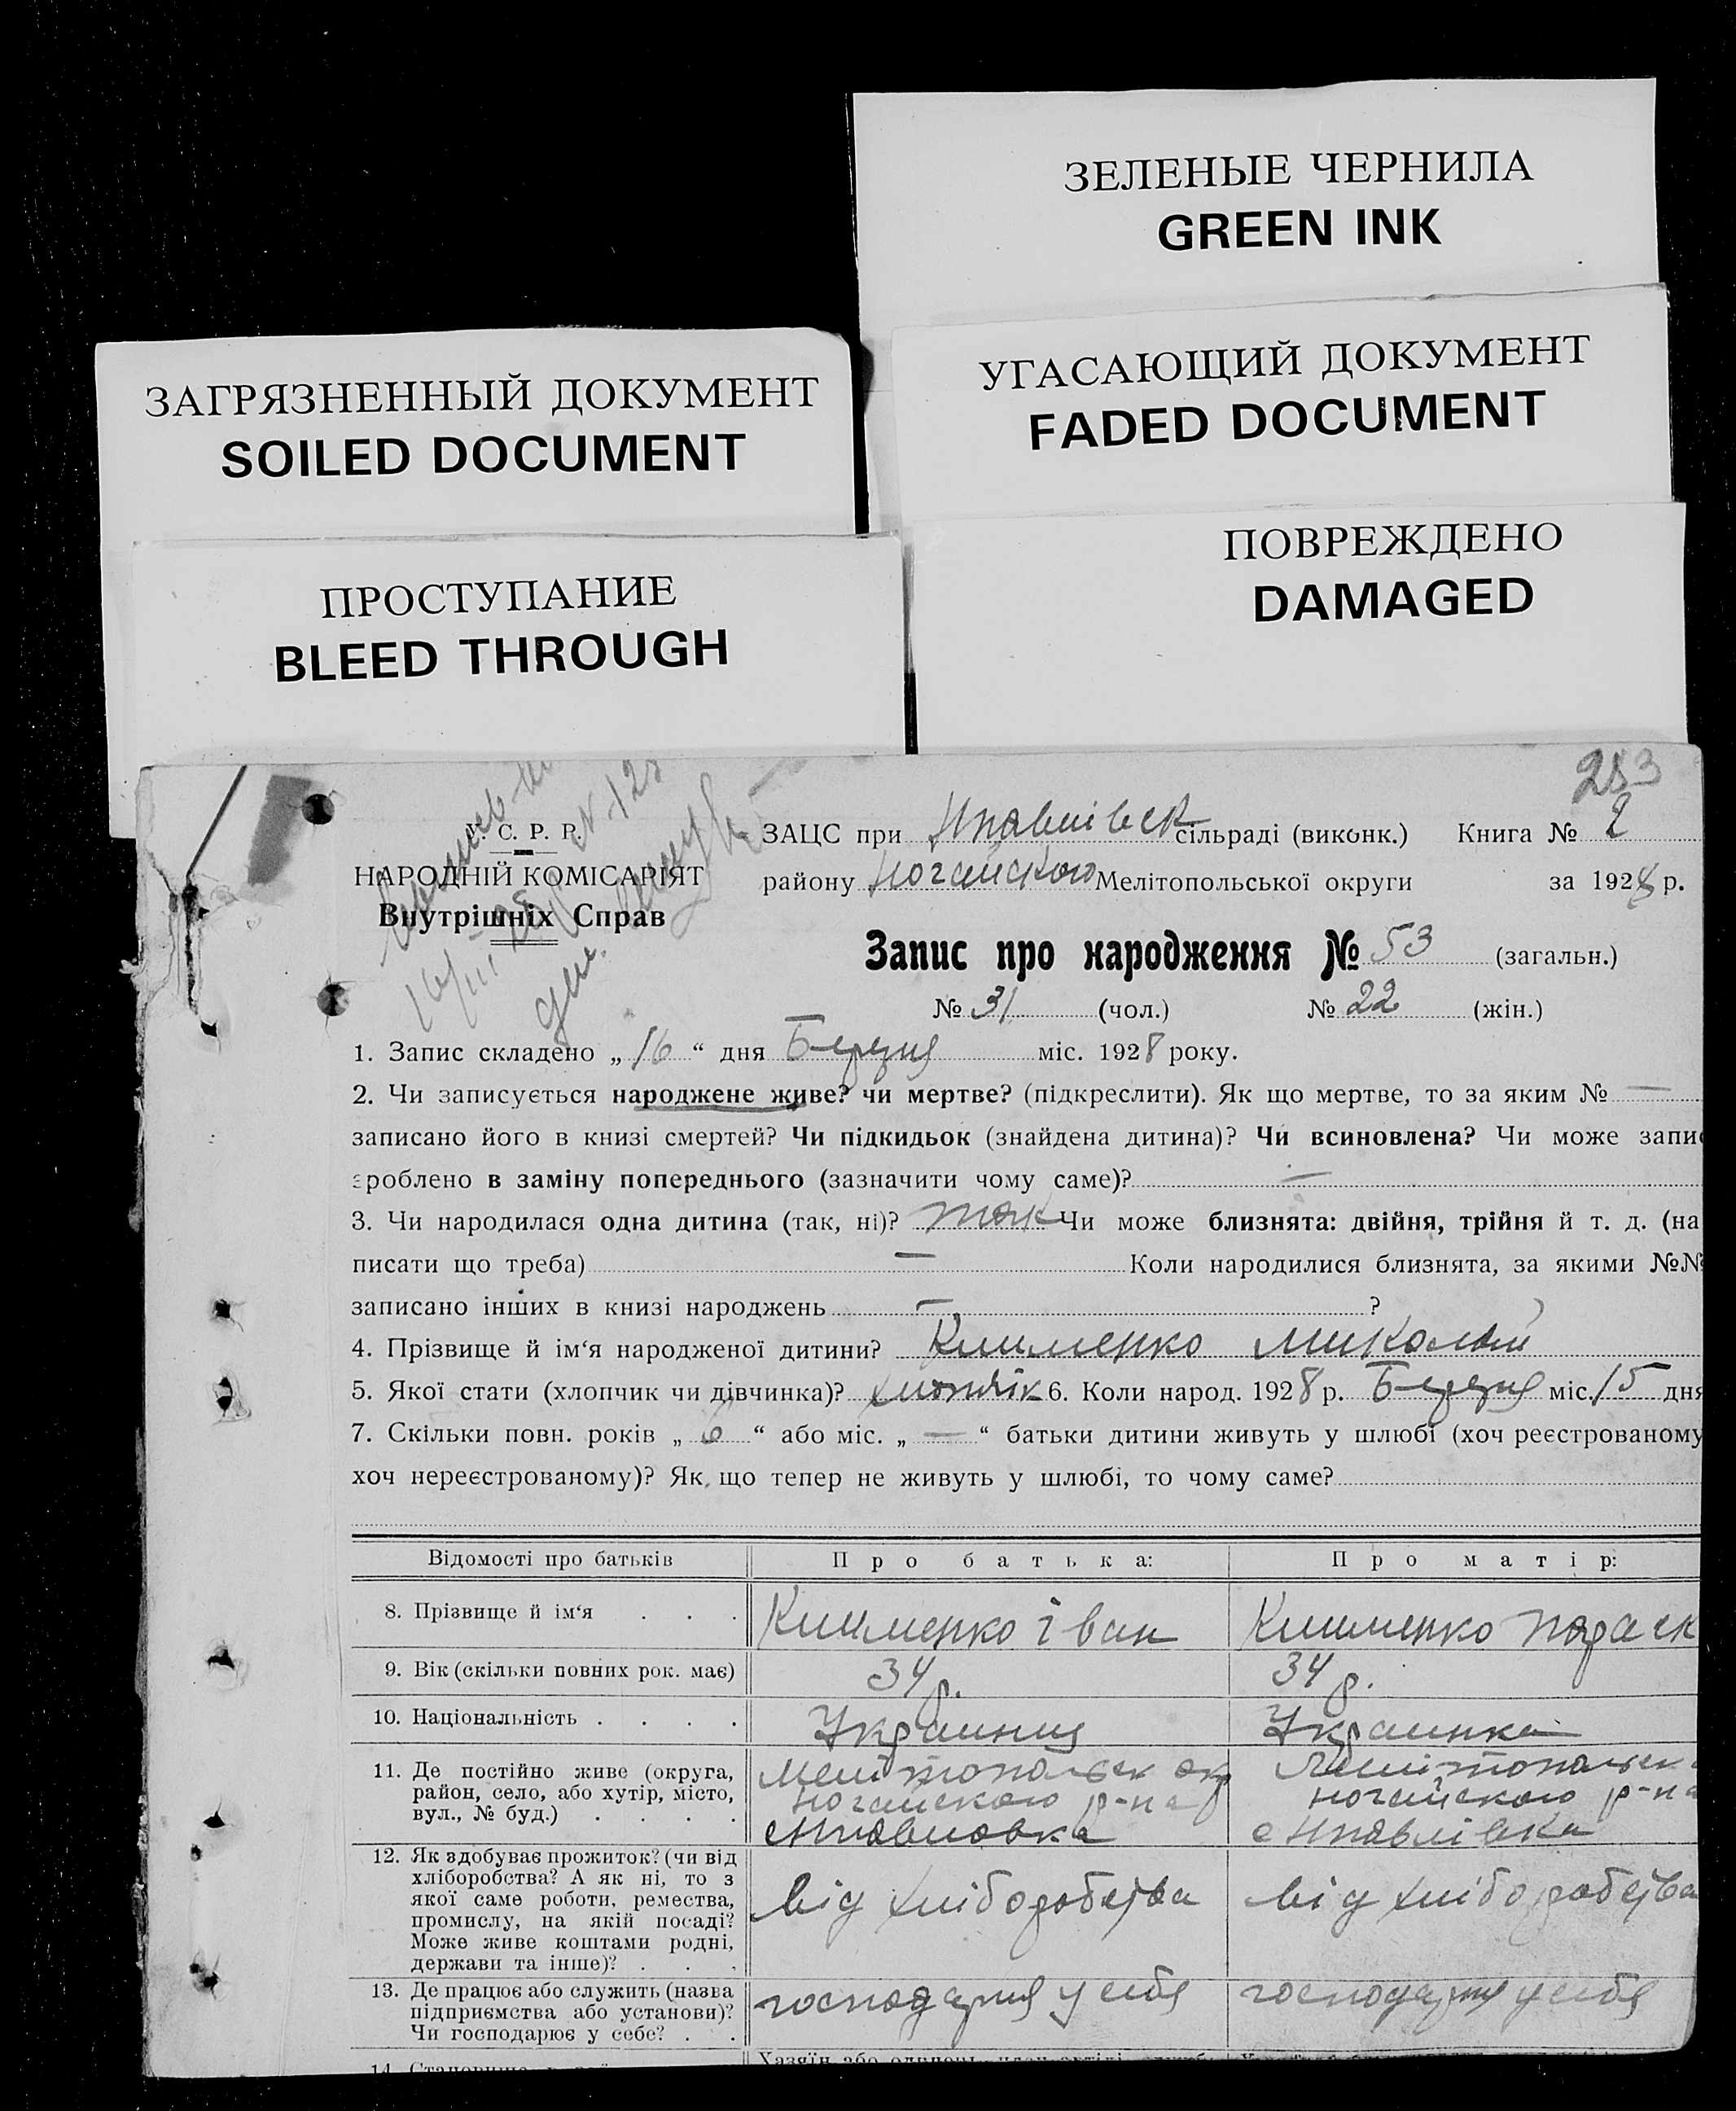 ЗЕЛЕНЫЕ ЧЕРНИЛА
GREEN INK
ЗАГРЯЗНЕННЫЙ ДОКУМЕНТ
SOILED DOCUMENT
УГАСАЮЩИЙ ДОКУМЕНТ
FADED DOCUMENT
ПРОСТУПАНИЕ
BLEED THROUGH
ПОВРЕЖДЕНО
DAMAGED
253
У. С. Р. Р.
НАРОДНІЙ КОМІСАРІЯТ
Внутрішніх Справ
ЗАЦС при сільраді (виконк.) Книга № 2
району Ногайского Мелітопольської округи за 1928 р.
Запис про народження № 53 (загальн.)
№ 31 (чол.) № 22 (жін.)
1. Запис складено „ 16 “ дня Березня міс. 1928 року.
2. Чи записується народжене живе? чи мертве? (підкреслити). Як що мертве, то за яким № —
записано його в книзі смертей? Чи підкидьок (знайдена дитина)? Чи всиновлена? Чи може запис
зроблено в заміну попереднього (зазначити чому саме)? —
3. Чи народилася одна дитина (так, ні)? так Чи може близнята: двійня, трійня й т. д. (на
писати що треба) — Коли народилися близнята, за якими №№
записано інших в книзі народжень — ?
4. Прізвище й ім‘я народженої дитини? Клименко Миколай
5. Якої стати (хлопчик чи дівчинка)? 6. Коли народ. 1928 р. Березня міс. 15 дня
7. Скільки повн. років „ 6 “ або міс. „ — “ батьки дитини живуть у шлюбі (хоч реєстрованому
хоч нереєстрованому)? Як що тепер не живуть у шлюбі, то чому саме?
Відомості про батьків Про батька: Про матір:
8. Прізвище й ім‘я . . . Клименко Іван Клименко Параск
9. Вік (скільки повних рок. має) 34 р. 34 р.
10. Національність . . . . Украинец Украинка
11. Де постійно живе (округа, Мелітопольск окр Мелітопольск
район, село, або хутір, місто, ногайского р-на ногайского р-на
вул., № буд.) . . . .
12. Як здобуває прожиток? (чи від
хліборобства? А як ні, то з
якої саме роботи, ремества, від хліборобства від хліборобства
промислу, на якій посаді?
Може живе коштами родні,
держави та інше)? . . .
13. Де працює або служить (назва господарня у себя господарня у себя
підприємства або установи)?
Чи господарює у себе? . .